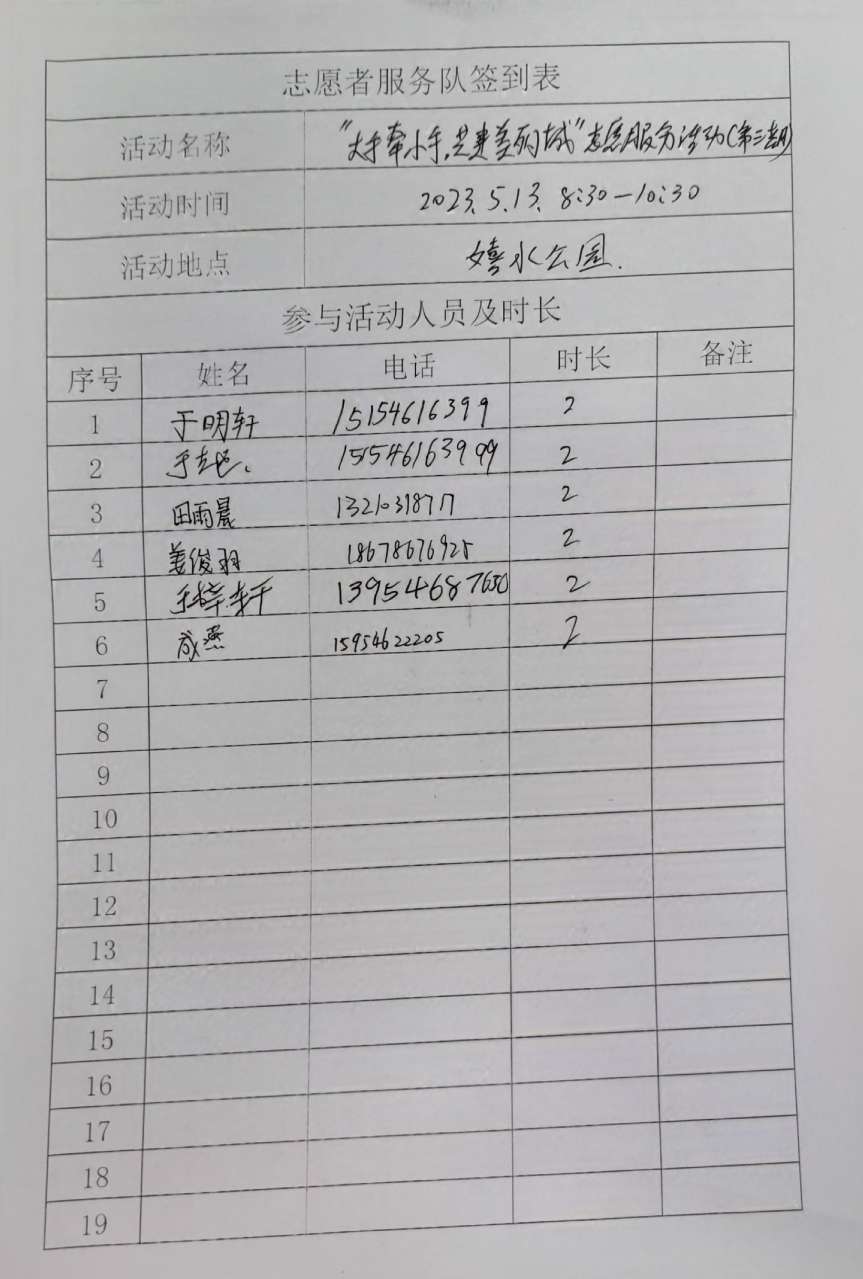 志愿者服务队签到表
活动名称 "大手牵小手,共建美丽城"志愿服务活动(第三期)
活动时间 2023.5.13. 8:30-10:30
活动地点 嬉水公园.
参与活动人员及时长
序号 姓名 电话 时长 备注
1 于明轩 15154616399 2
2 2
3 田雨晨 2
4 姜俊羽 18678676925 2
5 13954687650 2
6 成燕 15954622205 2
7
8
9
10
11
12
13
14
15
16
17
18
19